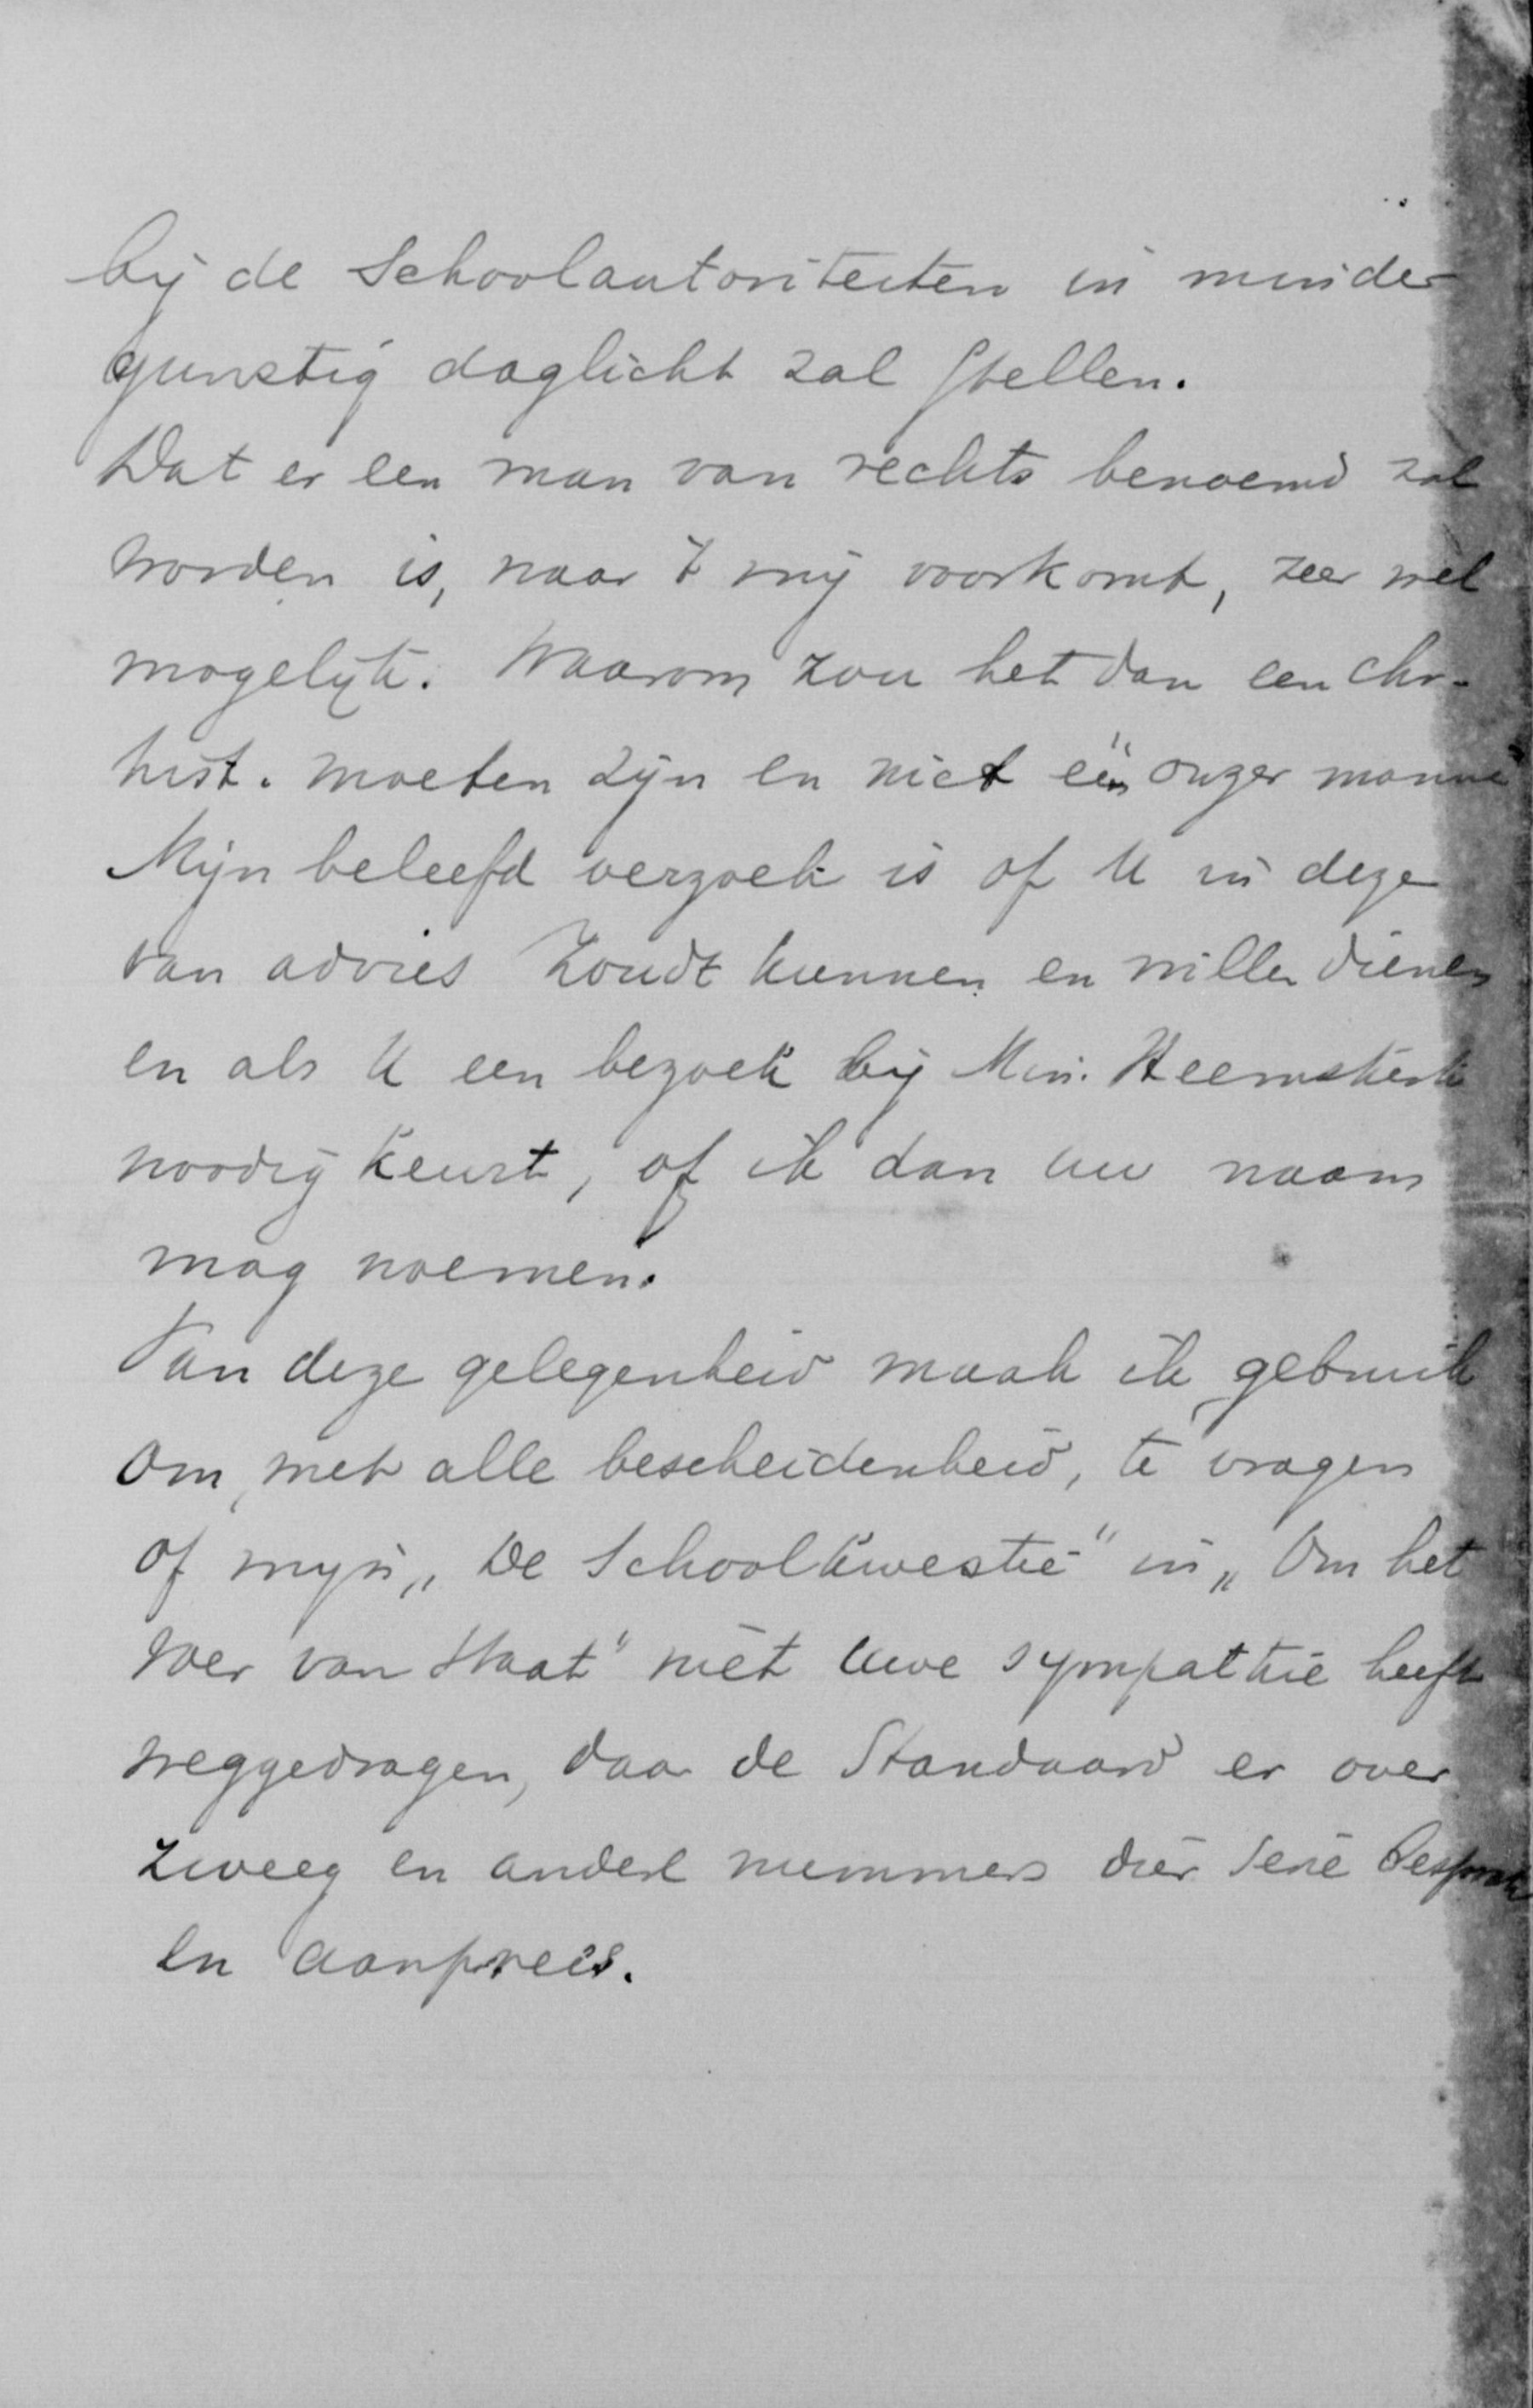 bij de Schoolautoriteiten in minder
gunstig daglicht zal stellen.
Dat er een man van rechts benoemd zal
worden is, naar 't mij voorkomt, zeer wel
mogelijk. Waarom zou het dan een chr.-
hist. moeten zijn en niet één onzer mannen
Mijn beleefd verzoek is of U in deze
van advies zoudt kunnen en willen dienen
en als U een bezoek bij Min. Heemskerk
noodig keurt, of ik dan uw naam
mag noemen.
Van deze gelegenheid maak ik gebruik
om, met alle bescheidenheid, te vragen
of mijn „De Schoolkwestie" in „Om het
roer van Staat" niet uwe sympathie heeft
weggedragen, daar de Standaard er over
zweeg en andere nummers dier serie besprak
en aanprees.